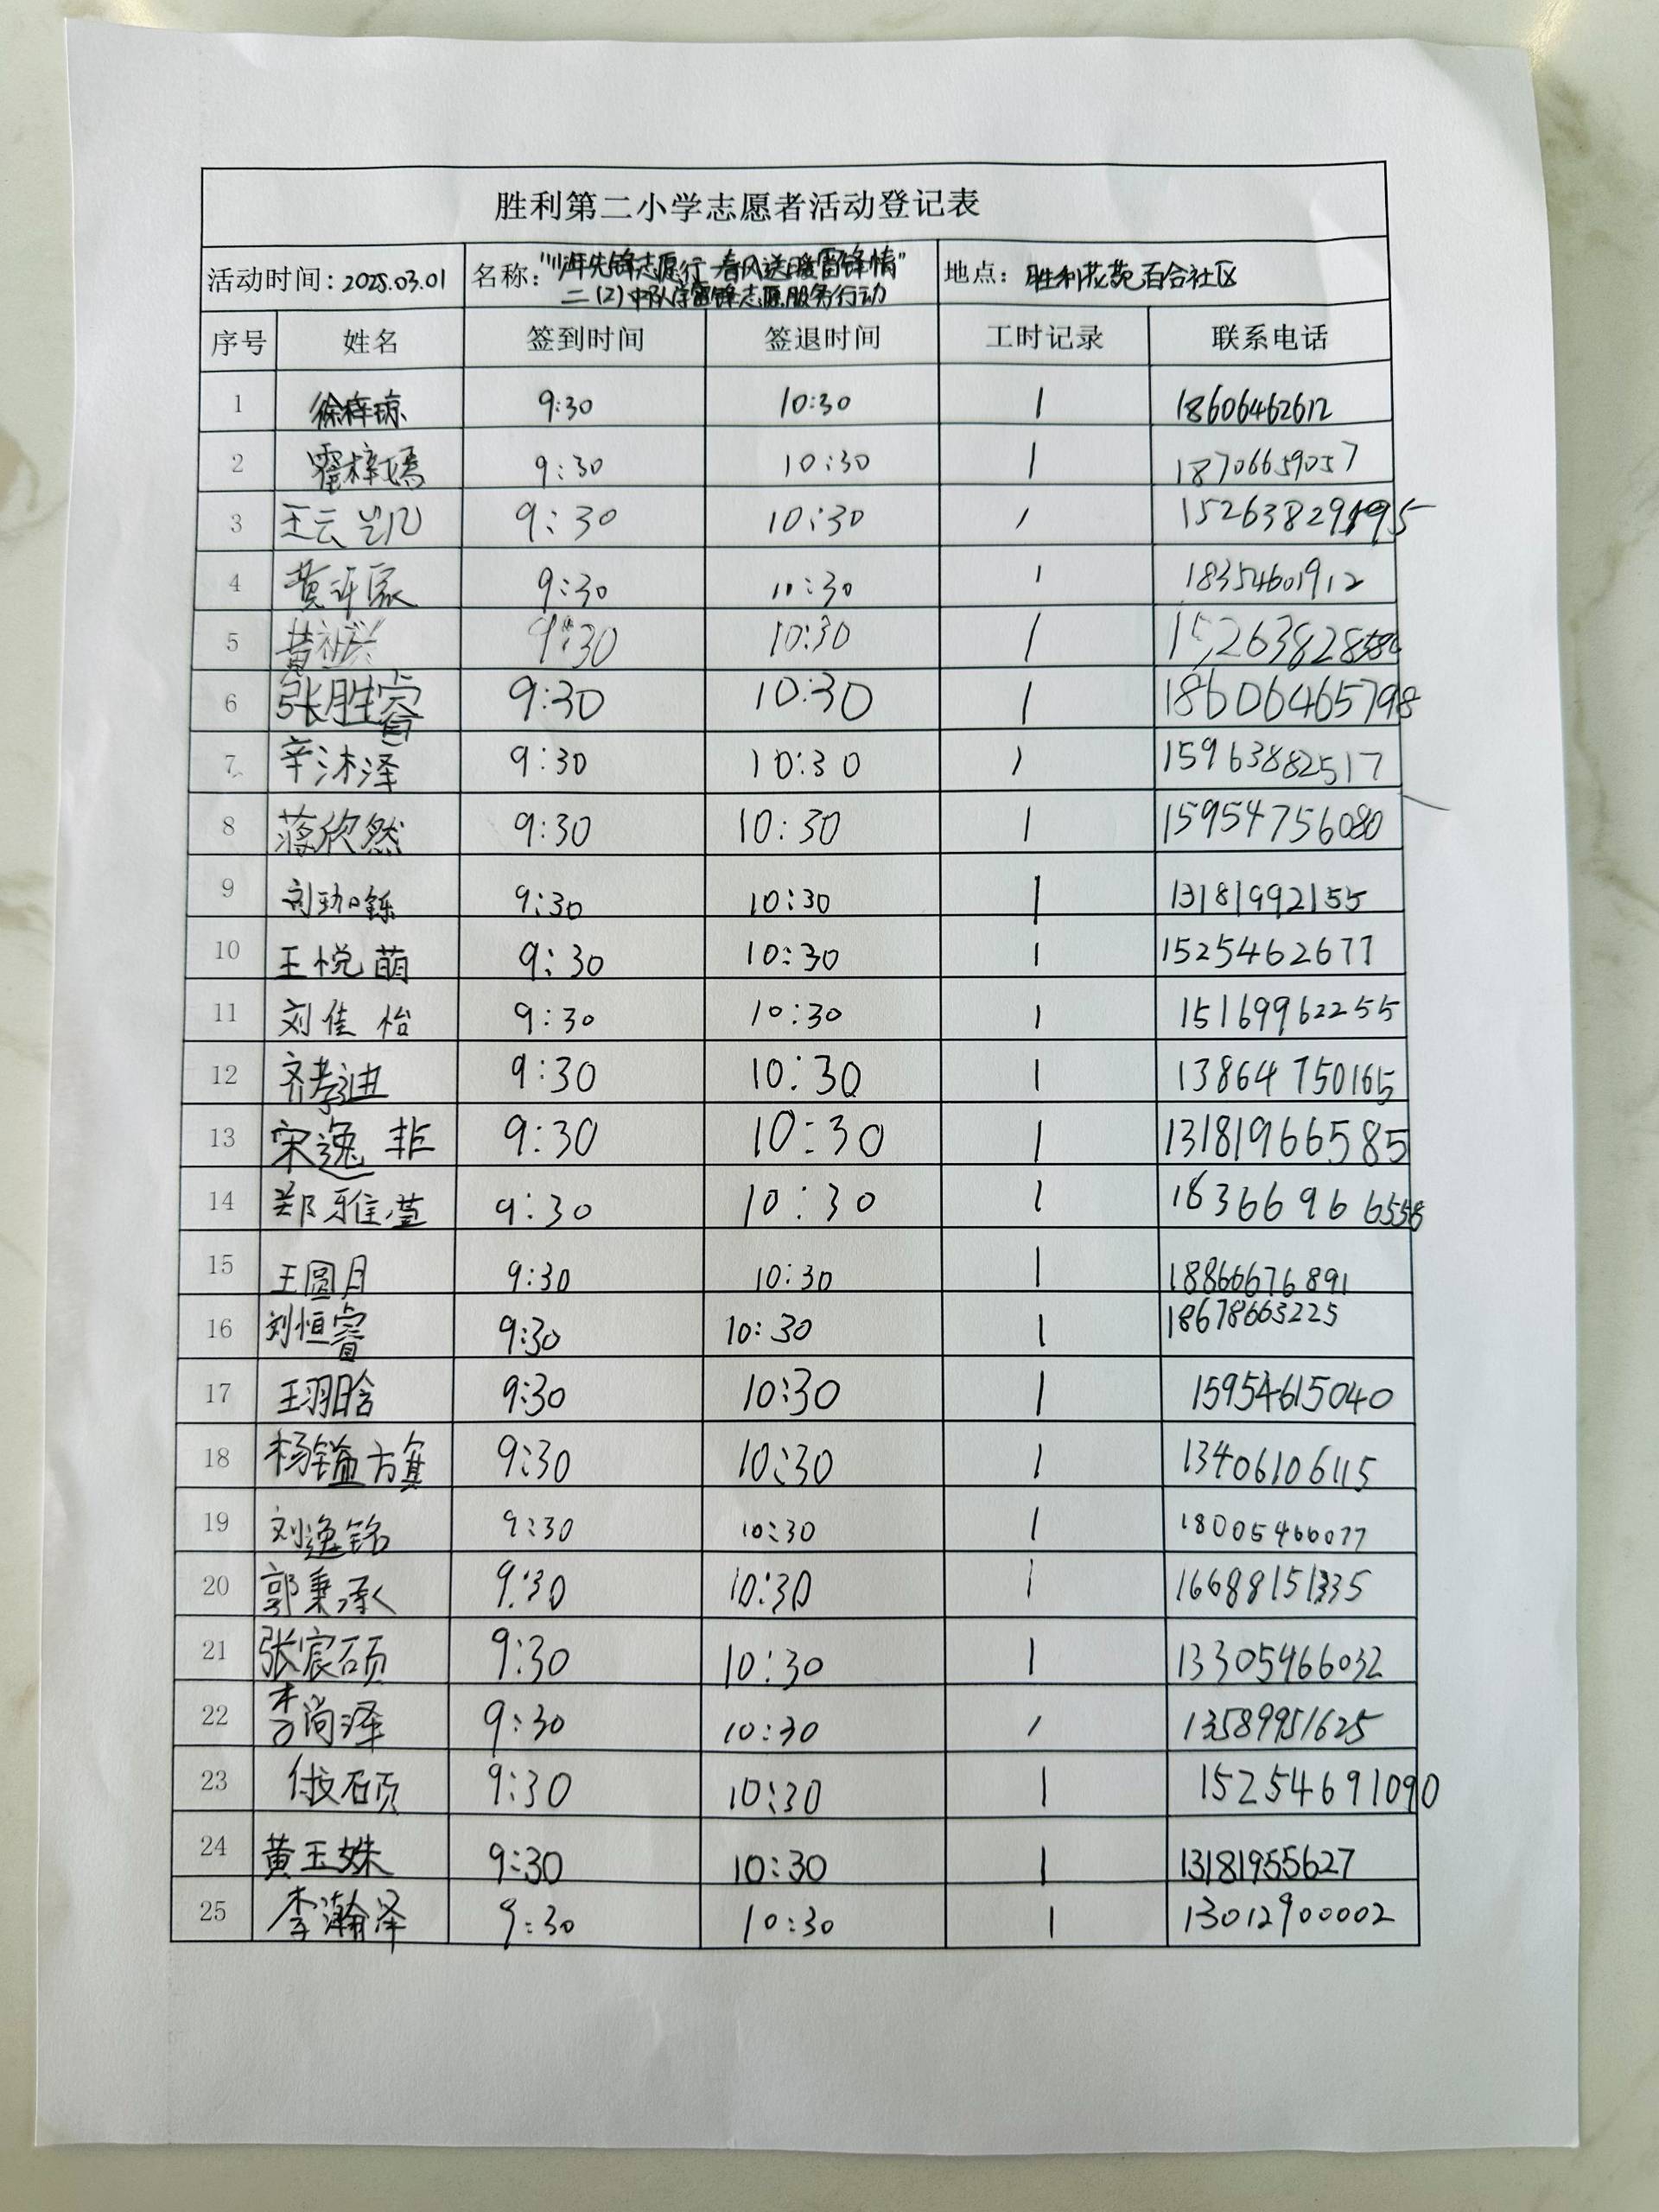 胜利第二小学志愿者活动登记表
活动时间：2025.03.01 名称："少年先锋志愿行 春风送暖雷锋情" 二（2）中队学雷锋志愿服务行动 地点：胜利花苑百合社区
序号 姓名 签到时间 签退时间 工时记录 联系电话
1 徐梓琼 9:30 10:30 1 18606462612
2 霍梓嫣 9:30 10:30 1 18706659057
3 王云 9:30 10:30 1 15263829195
4 黄 9:30 10:30 1 18354601912
5 黄 9:30 10:30 1
6 张胜睿 9:30 10:30 1 18606465798
7 辛沐泽 9:30 10:30 1 15963882517
8 蒋欣然 9:30 10:30 1 15954756080
9 刘珈铄 9:30 10:30 1 13181992155
10 王悦萌 9:30 10:30 1 1525462677
11 刘佳怡 9:30 10:30 1 15169962255
12 齐孝进 9:30 10:30 1 13864750165
13 宋逸非 9:30 10:30 1 13181966585
14 郑雅萱 9:30 10:30 1 18366966558
15 王圆月 9:30 10:30 1 18866676891
16 刘恒睿 9:30 10:30 1 18678663225
17 王羽晗 9:30 10:30 1 15954615040
18 杨镒方箕 9:30 10:30 1 13406106115
19 刘逸铭 9:30 10:30 1 18005466077
20 郭秉承 9:30 10:30 1 16688151335
21 张宸硕 9:30 10:30 1 13305466032
22 李尚泽 9:30 10:30 1 13589951625
23 硕 9:30 10:30 1 15254691090
24 黄玉姝 9:30 10:30 1 13181955627
25 李瀚泽 9:30 10:30 1 13012900002